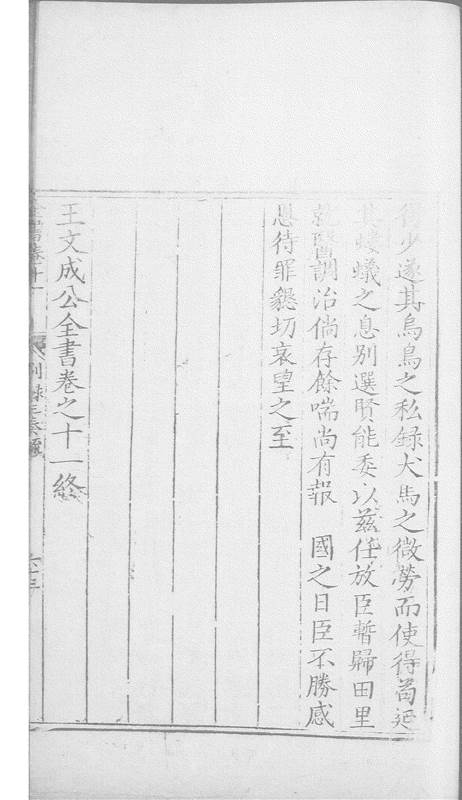 得少遂其烏鳥之私錄犬馬之微勞而使得苟延
其螻蟻之息別選賢能委以茲任放臣暫歸田里
就醫調治倘存餘喘尚有報　國之日臣不勝感
恩待罪懇切哀望之至
王文成公全書卷之十一終
全書卷十一　別錄三奏疏　六十三